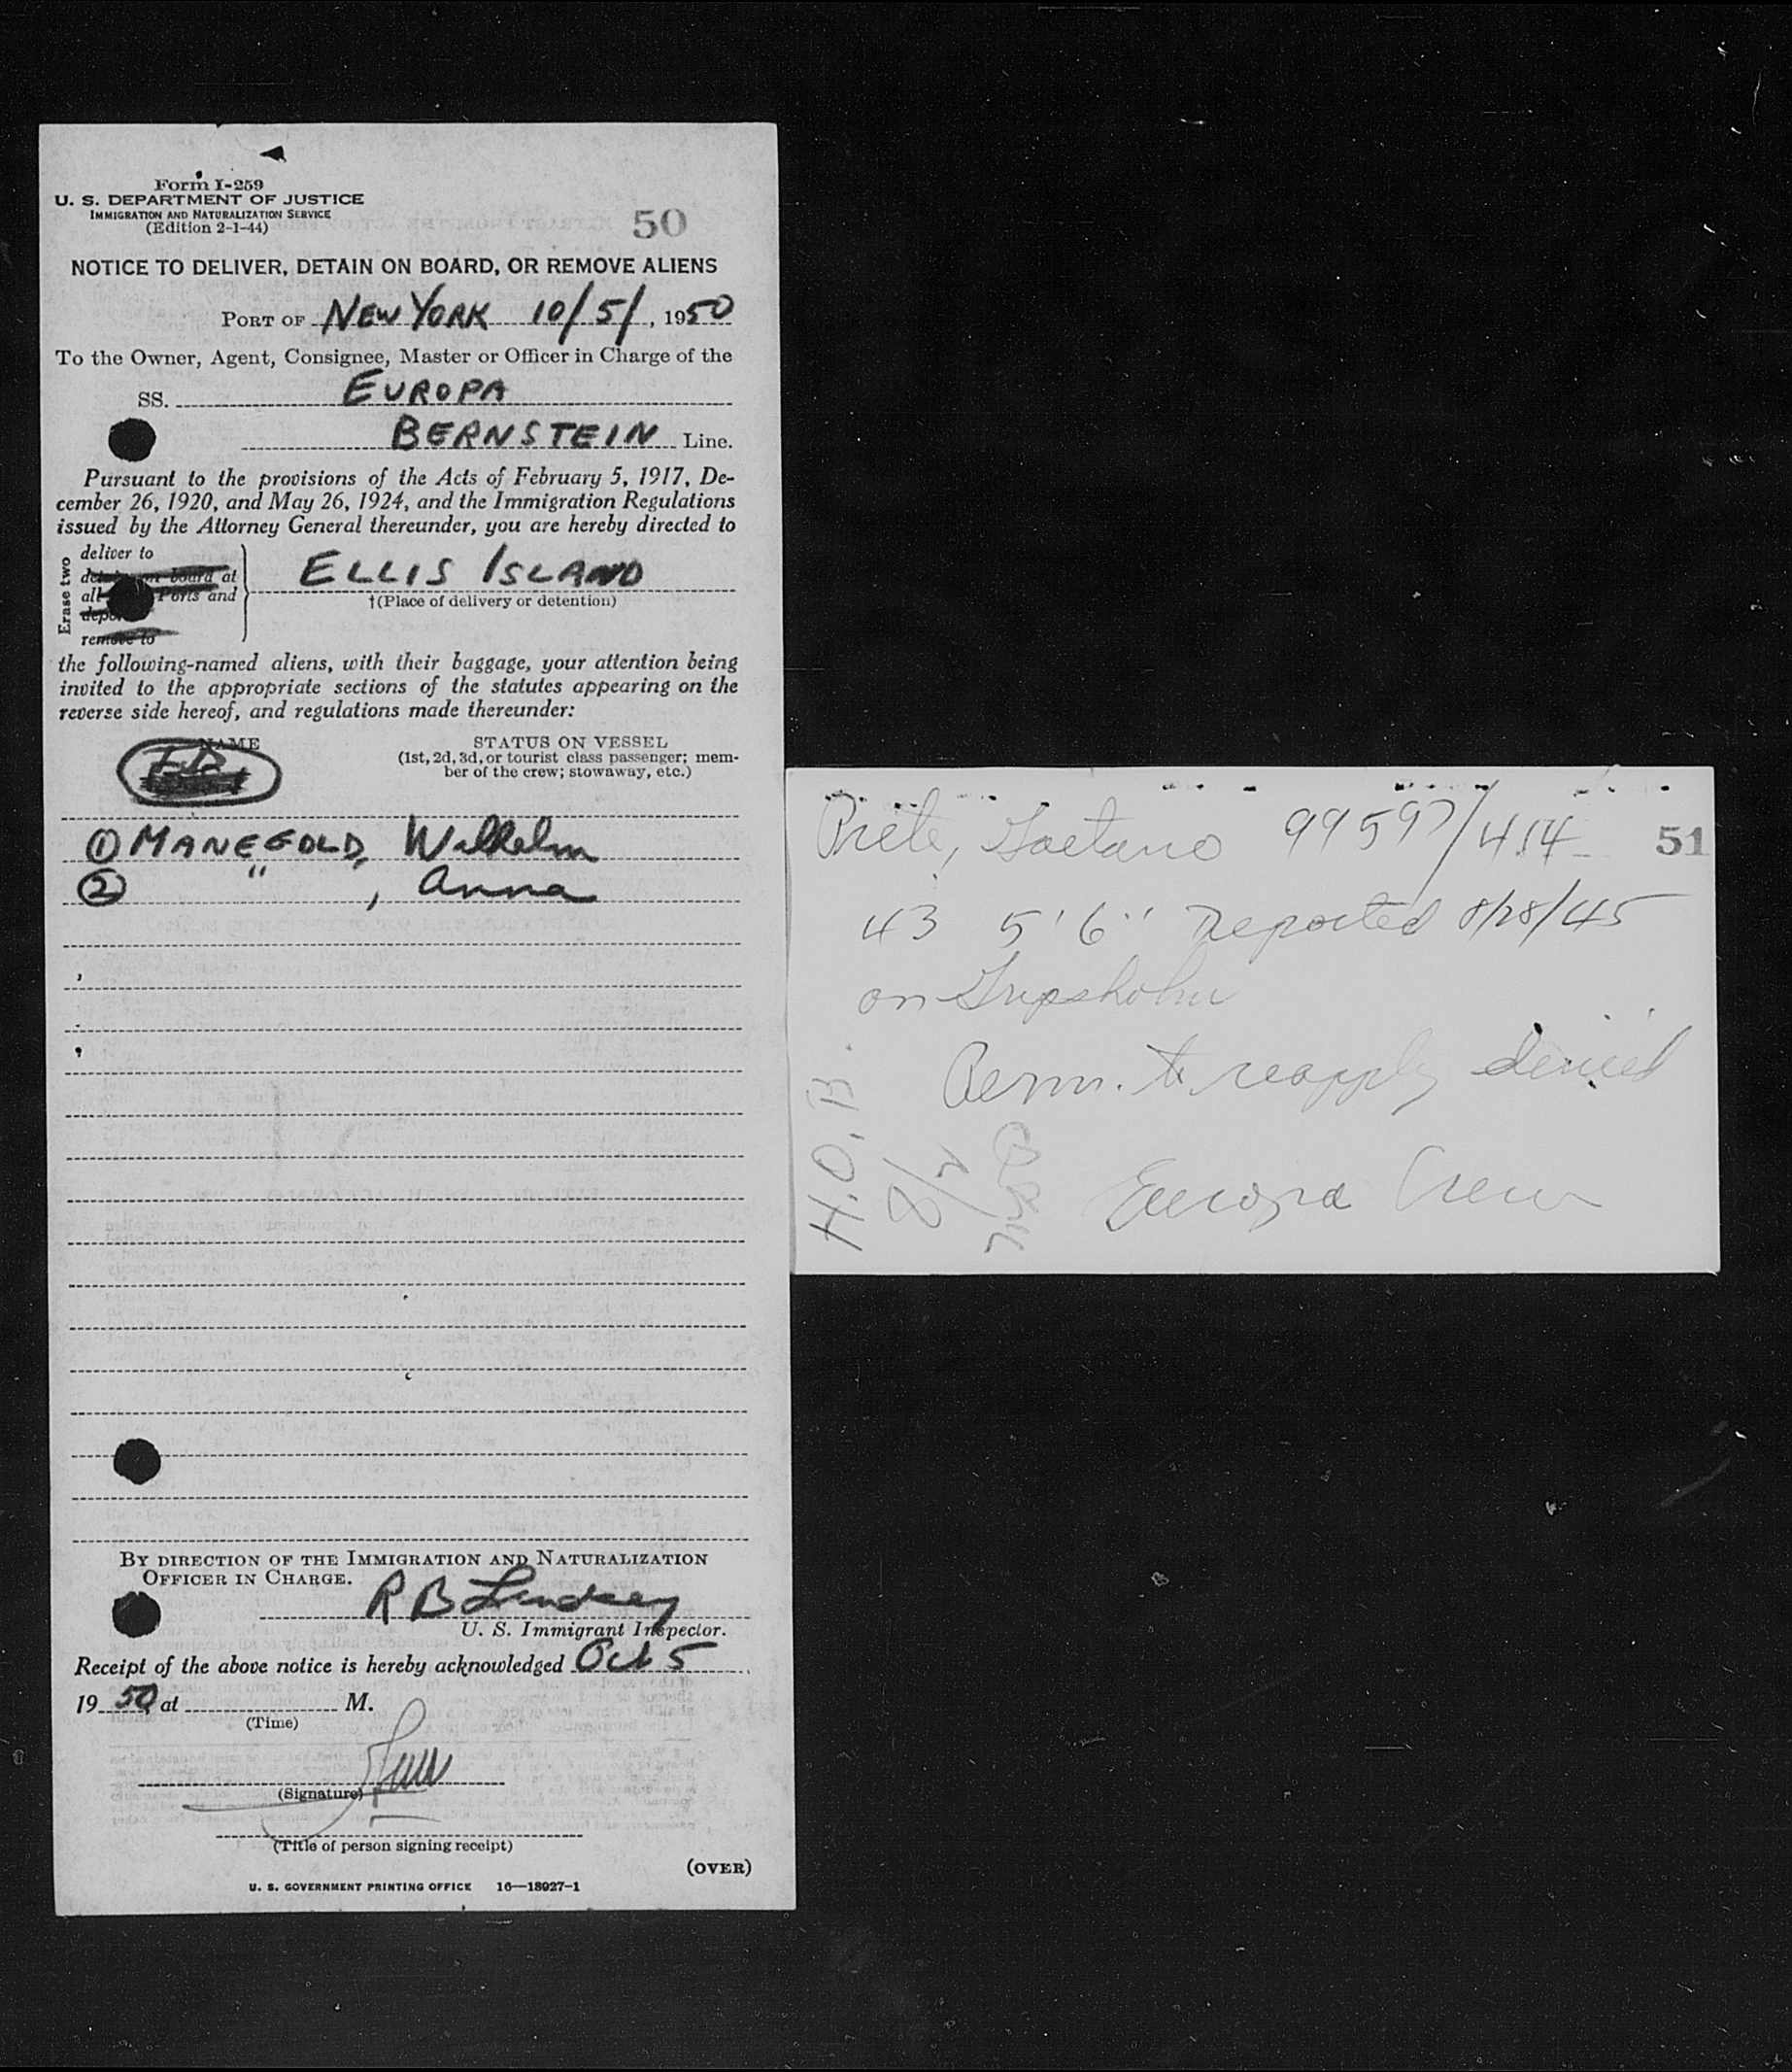 Form I-259
U. S. DEPARTMENT OF JUSTICE
IMMIGRATION AND NATURALIZATION SERVICE
(Edition 2-1-44)
50
NOTICE TO DELIVER, DETAIN ON BOARD, OR REMOVE ALIENS
PORT OF NEW YORK 10/5/, 1950
To the Owner, Agent, Consignee, Master or Officer in Charge of the
SS. EUROPA
BERNSTEIN Line.
Pursuant to the provisions of the Acts of February 5, 1917, De-
cember 26, 1920, and May 26, 1924, and the Immigration Regulations
issued by the Attorney General thereunder, you are hereby directed to
Erase two
deliver to
board at
all Ports and
remove to
ELLIS ISLAND
†(Place of delivery or detention)
the following-named aliens, with their baggage, your attention being
invited to the appropriate sections of the statutes appearing on the
reverse side hereof, and regulations made thereunder:
NAME
STATUS ON VESSEL
(1st, 2d, 3d, or tourist class passenger; mem-
ber of the crew; stowaway, etc.)
① MANEGOLD, Wilhelm
② " , Anna
BY DIRECTION OF THE IMMIGRATION AND NATURALIZATION
OFFICER IN CHARGE.
R B Lindsey
U. S. Immigrant Inspector.
Receipt of the above notice is hereby acknowledged Oct 5
1950 at M.
(Time)
(Signature)
(Title of person signing receipt)
(OVER)
U. S. GOVERNMENT PRINTING OFFICE 16—18027-1
Prete, Gaetano 99597/414 51
43 5'6" Deported 8/28/45
on Gripsholm
Perm. to reapply denied
Europa Crew
H.O.B.